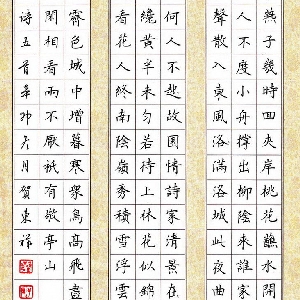 燕子幾時回夾岸桃花蘸水開
人不度小舟撑出柳陰來誰家
聲散入東風洛滿洛城此夜曲
何人不起故園情詩家清景在
繞黃半未勻若待上林花似錦
看花人終南陰嶺秀積雪浮雲
霽色城中增暮寒衆鳥高飛盡
閑相看兩不厭衹有敬亭山
詩五首辛卯月賀東祥